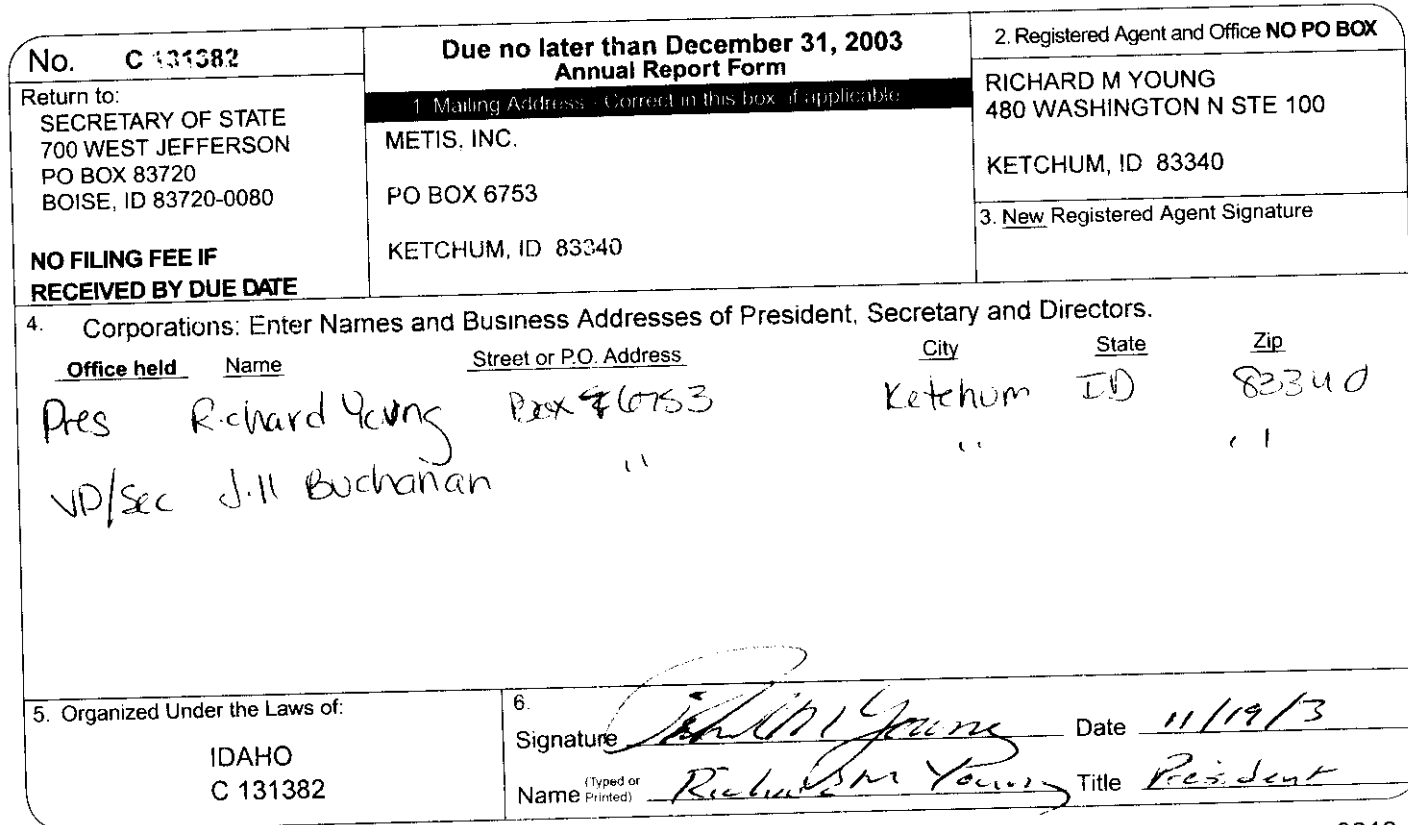 No. C 131382
Return to:
SECRETARY OF STATE
700 WEST JEFFERSON
PO BOX 83720
BOISE, ID 83720-0080
NO FILING FEE IF
RECEIVED BY DUE DATE
Due no later than December 31, 2003
Annual Report Form
1. Mailing Address - Correct in this box if applicable
METIS, INC.
PO BOX 6753
KETCHUM, ID 83340
2. Registered Agent and Office NO PO BOX
RICHARD M YOUNG
480 WASHINGTON N STE 100
KETCHUM, ID 83340
3. New Registered Agent Signature
4. Corporations: Enter Names and Business Addresses of President, Secretary and Directors.
Office held Name Street or P.O. Address City State Zip
Pres Richard Young Box 6753 Ketchum ID 83340
VP/Sec Jill Buchanan " " "
5. Organized Under the Laws of:
IDAHO
C 131382
6.
Signature Richard M Young Date 11/19/3
Name (Typed or Printed) Richard M Young Title President